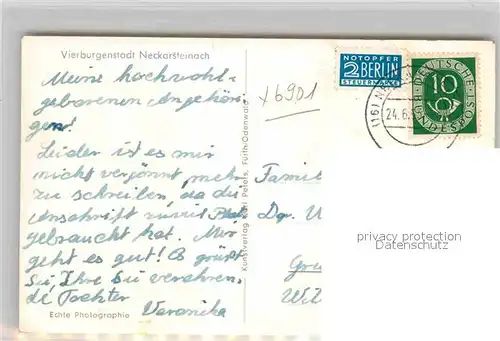 Vierburgenstadt Neckarsteinach
Meine hochwohl-
geborenen Angehöri-
gen!
Leider ist es mir
nicht vergönnt, mehr
zu schreiben, da die
Anschrift zuviel Platz
gebraucht hat. Mir
geht es gut! Es grüßt
Sie, Ihre Sie verehren-
de Tochter
Veronika
Echte Photographie
x6901
NOTOPFER
2 BERLIN
STEUERMARKE
DEUTSCHE
10
BUNDESPOST
(16)
24.6.
Famil
Dr. U
privacy protection
Datenschutz